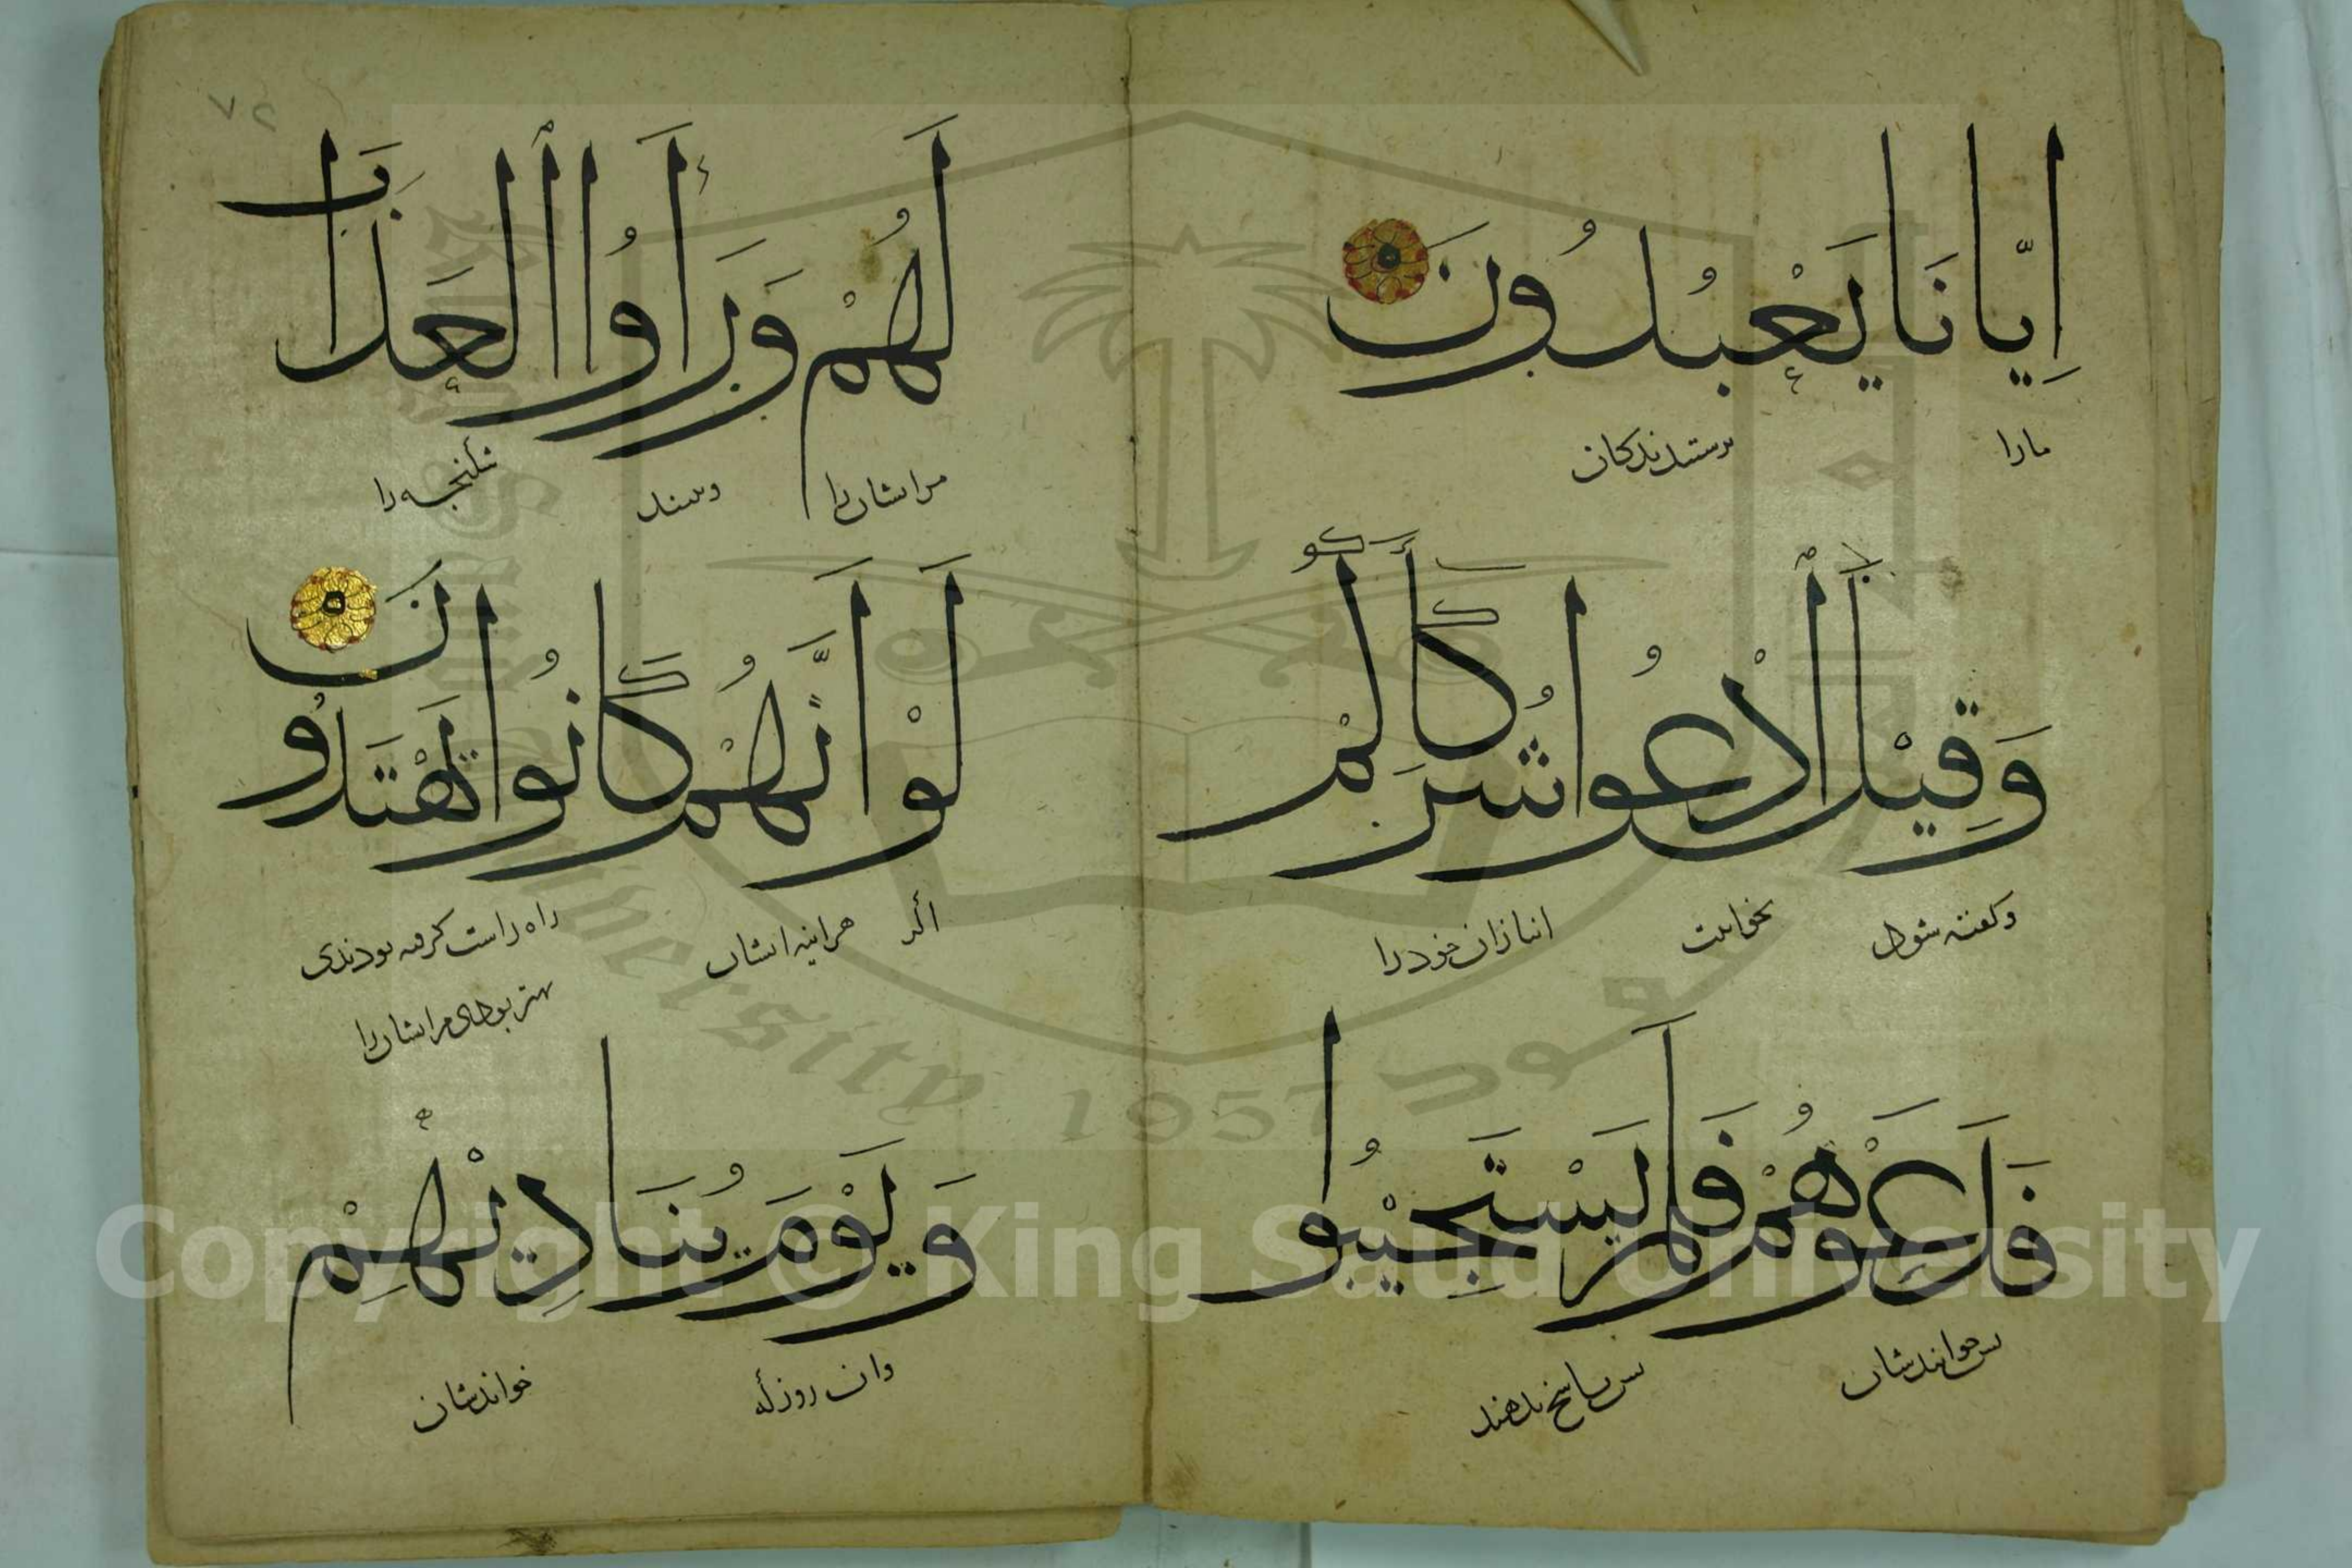 إِيَّانَا يَعْبُدُونَ
مارا پرستندگان
وَقِيْلَ ادْعُوا شُرَكَآءَكُمْ
وگفته شود بخوانیت انبازان خود را
فَدَعَوْهُمْ فَلَمْ يَسْتَجِيْبُوا
پس خوانندشان پس پاسخ ندهند
٧٢
لَهُمْ وَرَأَوُا الْعَذَابَ
مرایشان را وبینند شکنجه را
لَوْ أَنَّهُمْ كَانُوا يَهْتَدُونَ
اگر هراینه ایشان راه راست گرفته بودندی
بهتر بودی مرایشان را
وَيَوْمَ يُنَادِيْهِمْ
وان روز که خواندشان
Copyright © King Saud University
1957